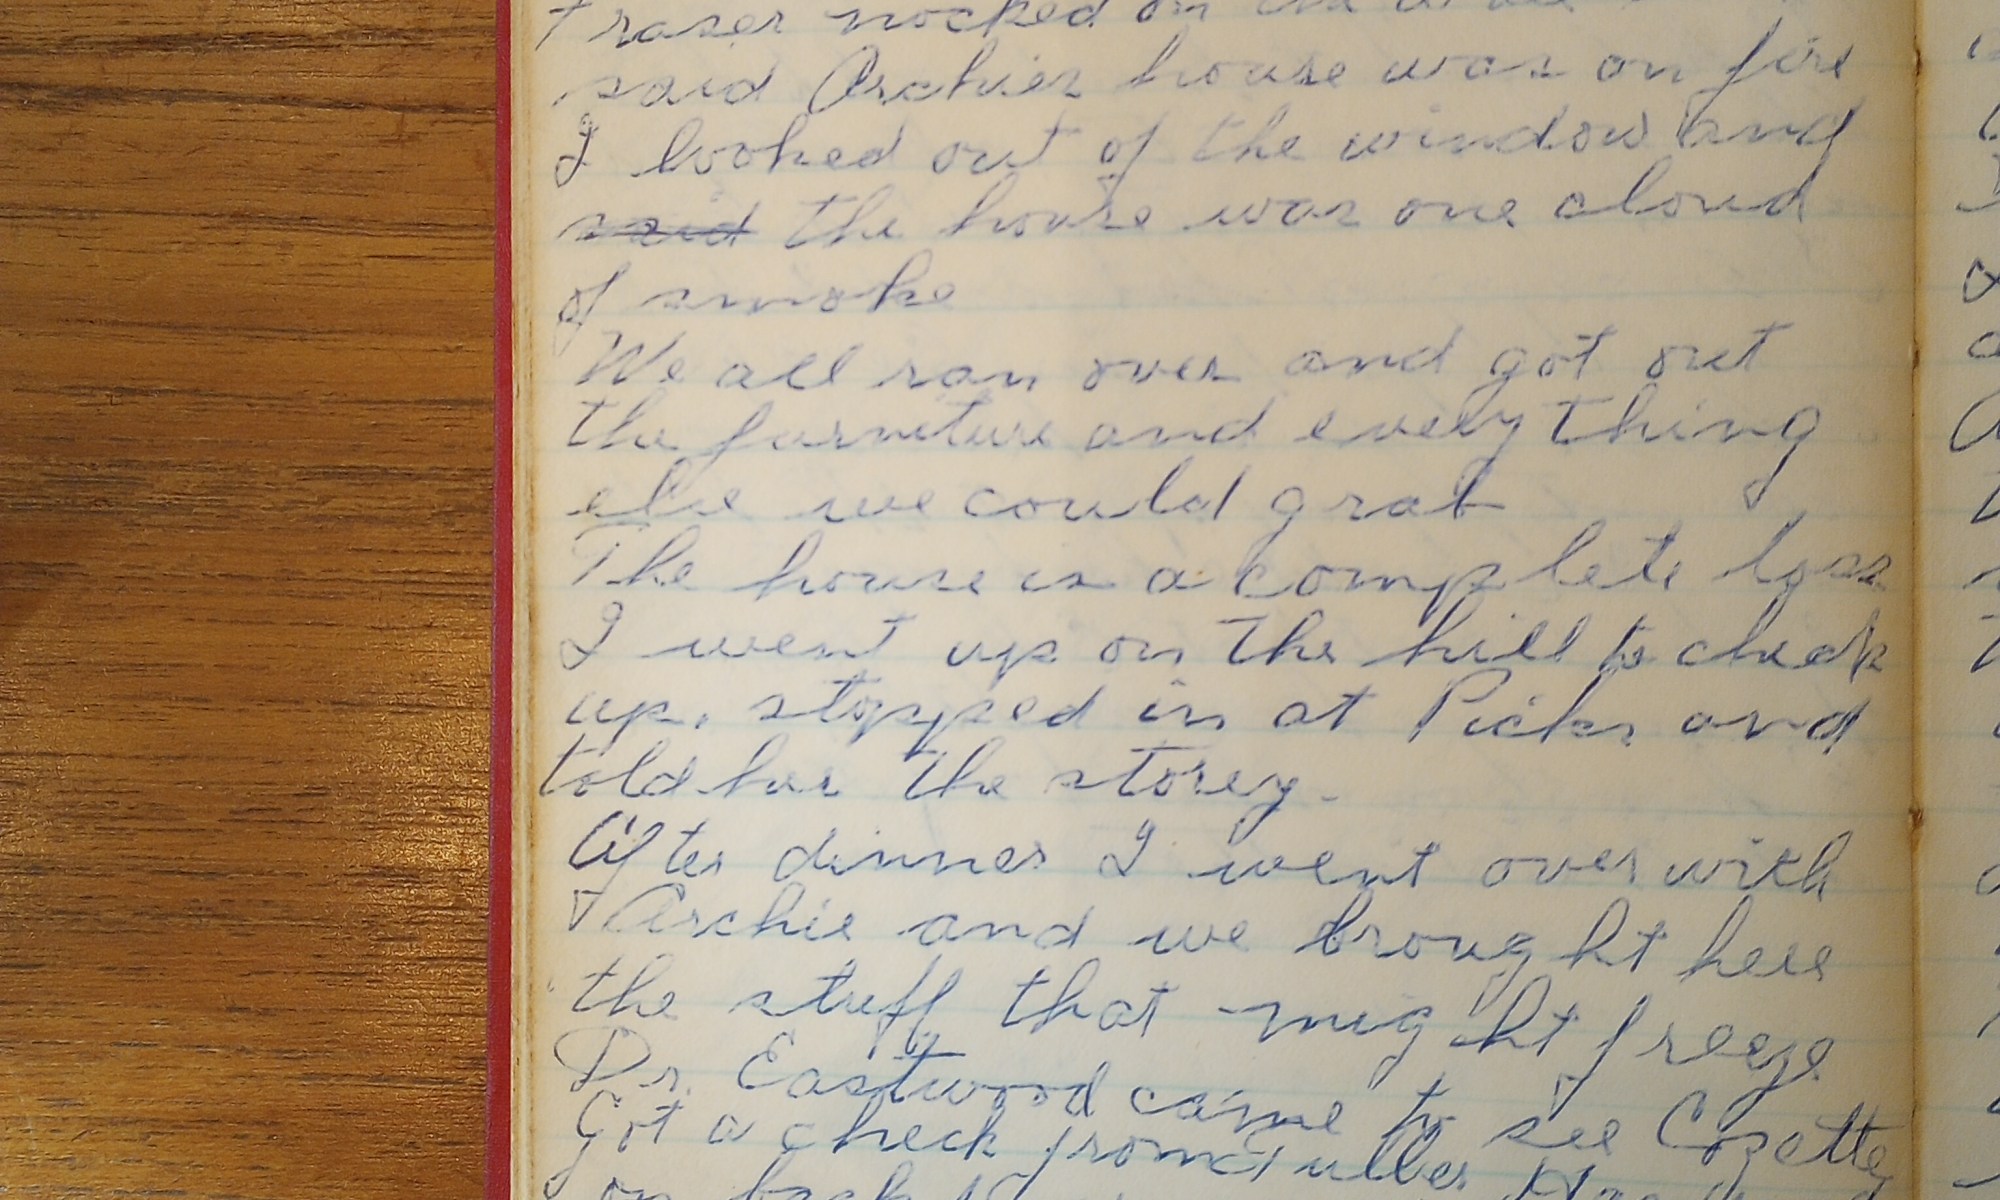 Fraser nocked on the
said Archies house was on fire
I looked out of the window and
said the house was one cloud
of smoke
We all ran over and got out
the furniture and everything
else we could grab
The house is a complete loss
I went up on the hill to check
up, stopped in at Picks and
told her the storey.
After dinner I went over with
Archie and we brought here
the stuff that might freeze
Dr. Eastwood came to see Cozette
Got a check from
on back